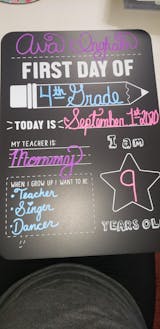 Ava English
FIRST DAY OF
4th Grade
TODAY IS September 1st 2020
MY TEACHER IS:
Mommy
I am
9
YEARS OLD
WHEN I GROW UP I WANT TO BE
Teacher
Singer
Dancer